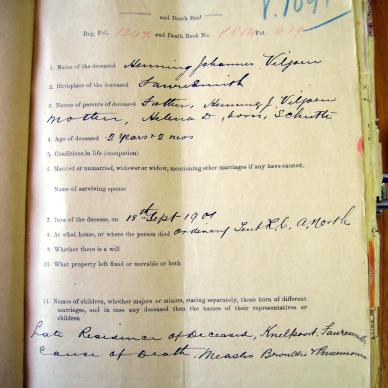 and Death Boo
Reg. Fol. 1247 and Death Book No. Fol. 419
1. Name of the deceased Henning Johannes Viljoen
2. Birthplace of the deceased Fauresmith
3. Names of parents of deceased Father, Henning J. Viljoen
Mother, Helena D, born, Schutte
4. Age of deceased 2 years + 2 mos
5. Conditions in life (occupation)
6. Married or unmarried, widower or widow, mentioning other marriages if any have existed.
Name of surviving spouse
7. Date of the decease, on 18th Sept 1901
8. At what house, or where the person died ordinary Tent R.C. A. North
9. Whether there is a will
10. What property left fixed or movable or both
11. Names of children, whether majors or minors, stating separately, those born of different
marriages, and in case any deceased then the names of their representatives or
children
Late Residence of Deceased, Knelpoort, Fauresmith
Cause of Death. Measles Broncho + Pneumonia